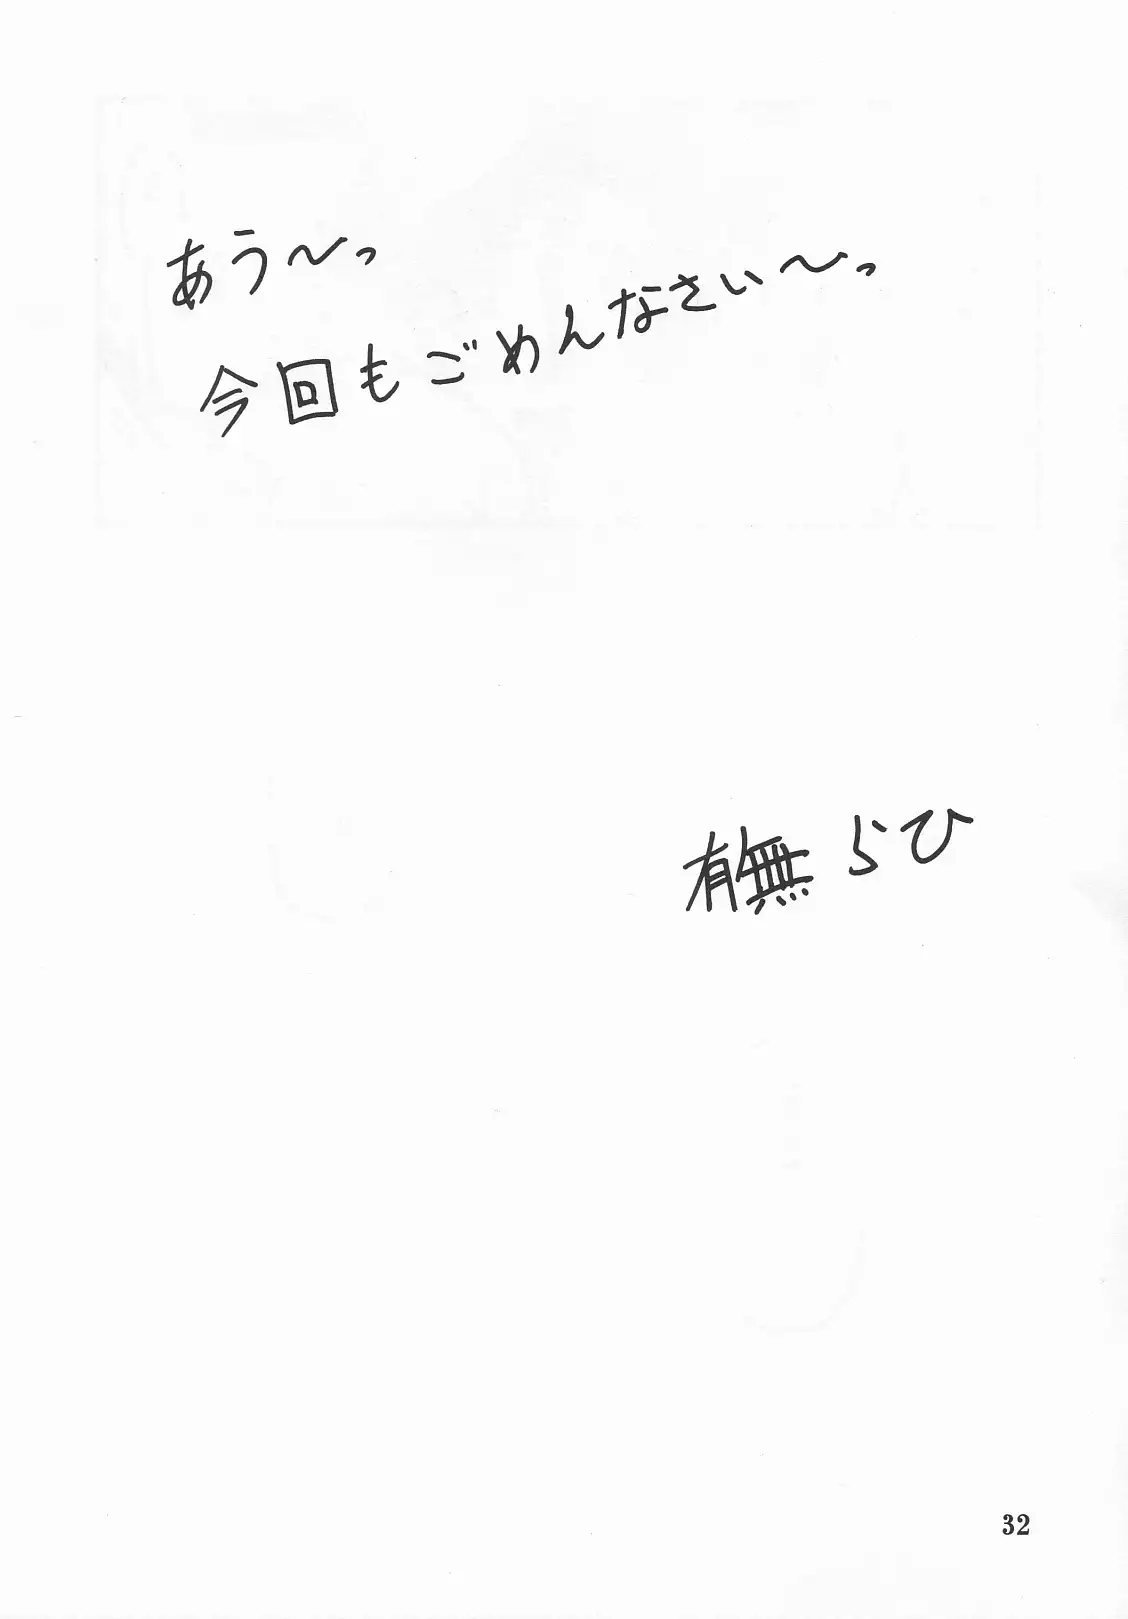 あう〜っ
今回もごめんなさい〜っ
有無らひ
32